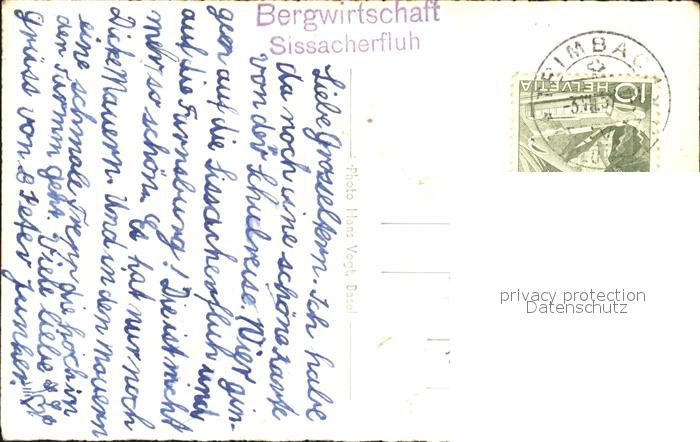 Bergwirtschaft
Sissacherfluh
SIMBACH
10 HELVETIA
Liebe Grosseltern. Ich habe
da noch eine schöne Karte
von der Schulreise. Wier gin-
gen auf die Sissacherfluh und
auf die Farnsburg! Die ist nicht
mer so schön. Es hat nur noch
Dicke Mauern. Und in den Mauern
eine schmale Trepp die hoch in
den Turmm geht. Viele liebe
Grüss von Peter
Photo Hans Vogt, Basel
privacy protection
Datenschutz